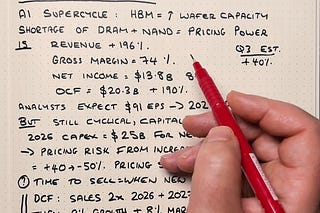 AI SUPERCYCLE: HBM = ↑ WAFER CAPACITY
SHORTAGE OF DRAM + NAND = PRICING POWER
IS REVENUE +196%
Q3 EST.
+40%
GROSS MARGIN = 74%
NET INCOME = $13.8B 8
OCF = $20.3B +190%
ANALYSTS EXPECT $91 EPS → 202
BUT STILL CYCLICAL, CAPITAL
2026 CAPEX = $25B FOR NE
→ PRICING RISK FROM INCREA
= +40→-50% PRICING S
? TIME TO SELL = WHEN NEW
DCF: SALES 2X 2026 + 202